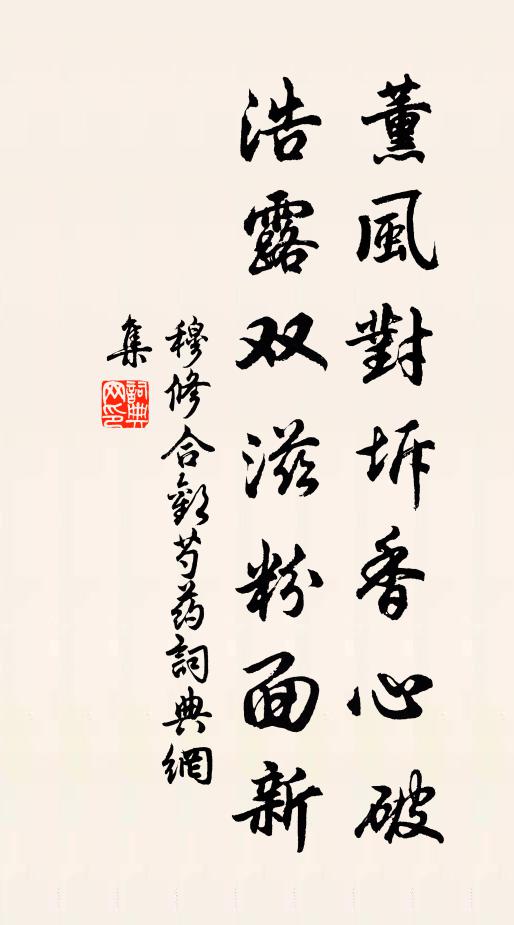 薰風對坼香心破
浩露双滋粉面新
穆修合歡芍药詞典網
集
詞典
网印